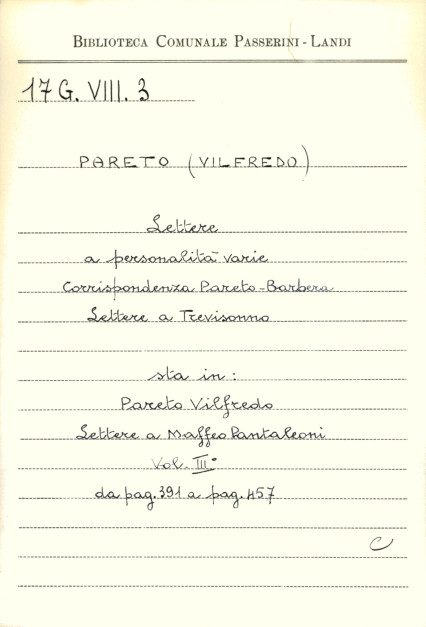 BIBLIOTECA COMUNALE PASSERINI - LANDI
17 G. VIII. 3
PARETO (VILFREDO)
Lettere
a personalità varie
Corrispondenza Pareto-Barbera
Lettere a Trevisonno
sta in:
Pareto Vilfredo
Lettere a Maffeo Pantaleoni
Vol. III°
da pag. 391 a pag. 457
C